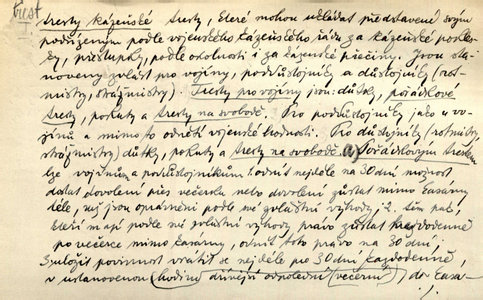 trest
tresty kázeňské tresty, které mohou ukládat představení svým
podřízeným podle vojenského kázeňského řádu za kázeňské poklesky,
přestupky, podle okolností i za kázeňské přečiny. Jsou sta-
noveny zvlášť pro vojíny, poddůstojníky a důstojníky (rot-
mistry, strážmistry). Tresty pro vojíny jsou: důtky, pořádkové
tresty, pokuty a tresty na svobodě. Pro poddůstojníky jako u vo-
jínů a mimo to odnětí vojenské hodnosti. Pro důstojníky (rotmistry,
strážmistry) důtky, pokuty a tresty na svobodě. a) Pořádkovým trestem
lze vojínům a poddůstojníkům: 1. odnít nejdéle na 30 dní možnost
dostat dovolení přes večerku nebo dovolení zůstat mimo kasárny
déle, než jsou oprávněni podle své zvláštní výhody; 2. těm pak,
kteří mají podle své zvláštní výhody právo zůstat každodenně
po večerce mimo kasárny, odnít toto právo na 30 dní;
3. uložit povinnost vrátit se nejdéle po 30 dní každodenně,
v ustanovenou (hodinu dřívější odpolední (večerní) do kasá-